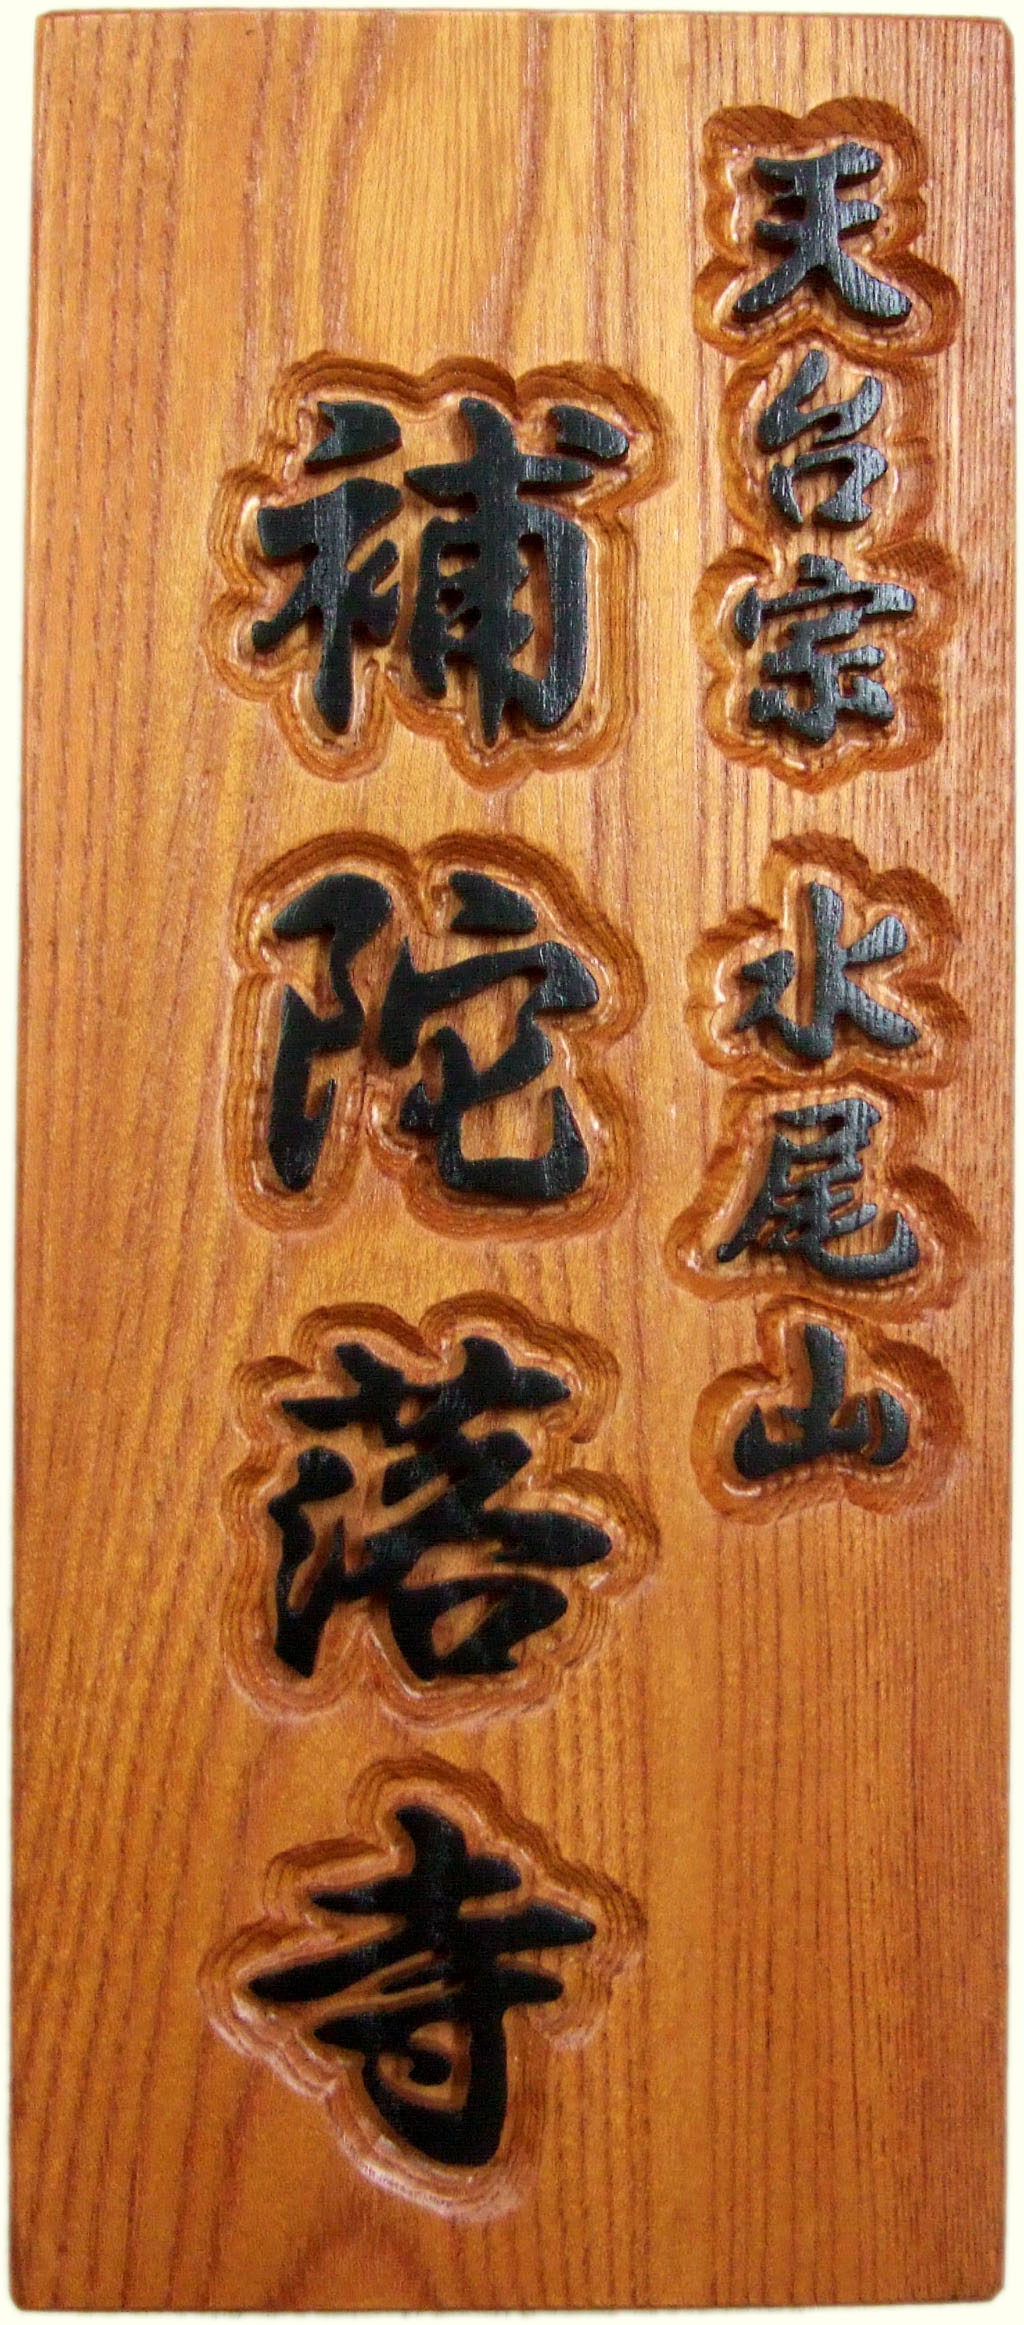 天台宗 水尾山
補陀落寺